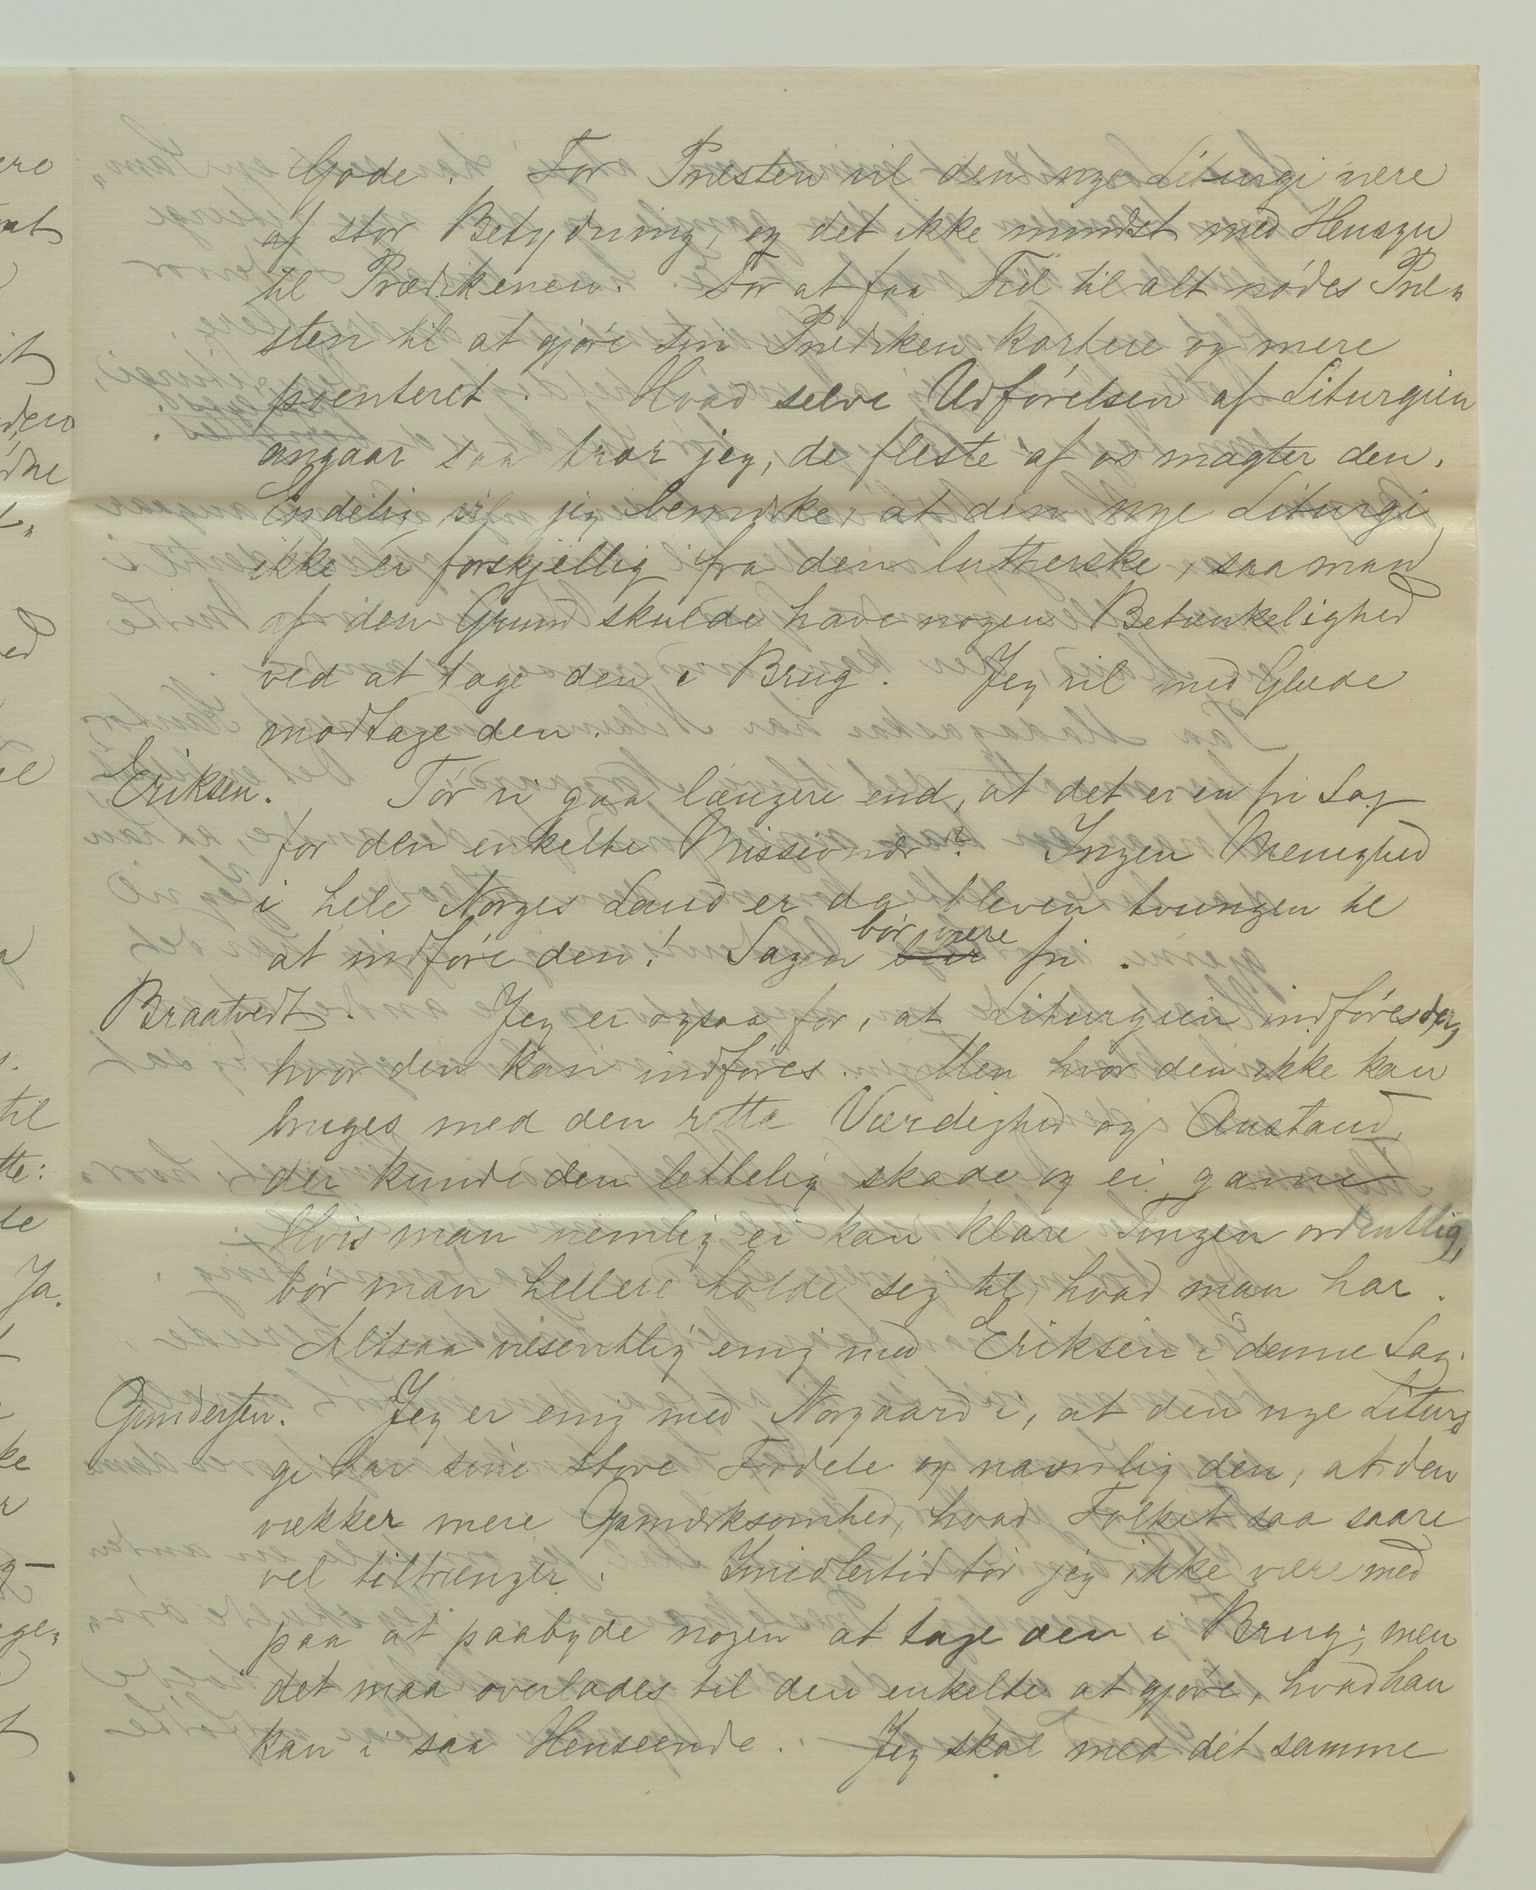 Gode. For Præsten vil den nye Liturgi være
af stor Betydning, og det ikke mindst med Hensyn
til Prædikenen. For at faa Tid til alt nødes Præ„
sten til at gjøre sin Prædiken kortere og mere
poenteret. Hvad selve Udførelsen af Liturgien
angaar saa tror jeg, de fleste af os magter den.
Endelig vil jeg bemærke, at den nye Liturgi
ikke er forskjellig fra den lutherske, saa man
af den Grund skulde have nogen Betænkelighed
ved at tage den i Brug. Jeg vil med Glæde
modtage den.
Eriksen. Tør vi gaa længere end, at det er en fri Sag
for den enkelte Missionær? Ingen Menighed
i hele Norges Land er da bleven tvungen til
at indføre den! Sagen bør være fri.
Braatvedt. Jeg er ogsaa for, at Liturgien indføres der,
hvor den kan indføres. Men hvor den ikke kan
bruges med den rette Værdighed og Anstand,
der kunde den lettelig skade og ei gavne.
Hvis man nemlig ei kan klare Tingen ordentlig,
bør man hellere holde seg til, hvad man har.
Altsaa væsentlig enig med Eriksen i denne Sag.
Gundersen. Jeg er enig med Norgaard i, at den nye Litur„
gi har sine store Fordele og navnlig den, at den
vækker mere Opmærksomhed, hvad Folket saa saare
vel tiltrænger. Imidlertid tør jeg ikke være med
paa at paabyde nogen at tage den i Brug; men
det maa overlades til den enkelte at gjøre, hvad han
kan i saa Henseende. Jeg skal med det samme